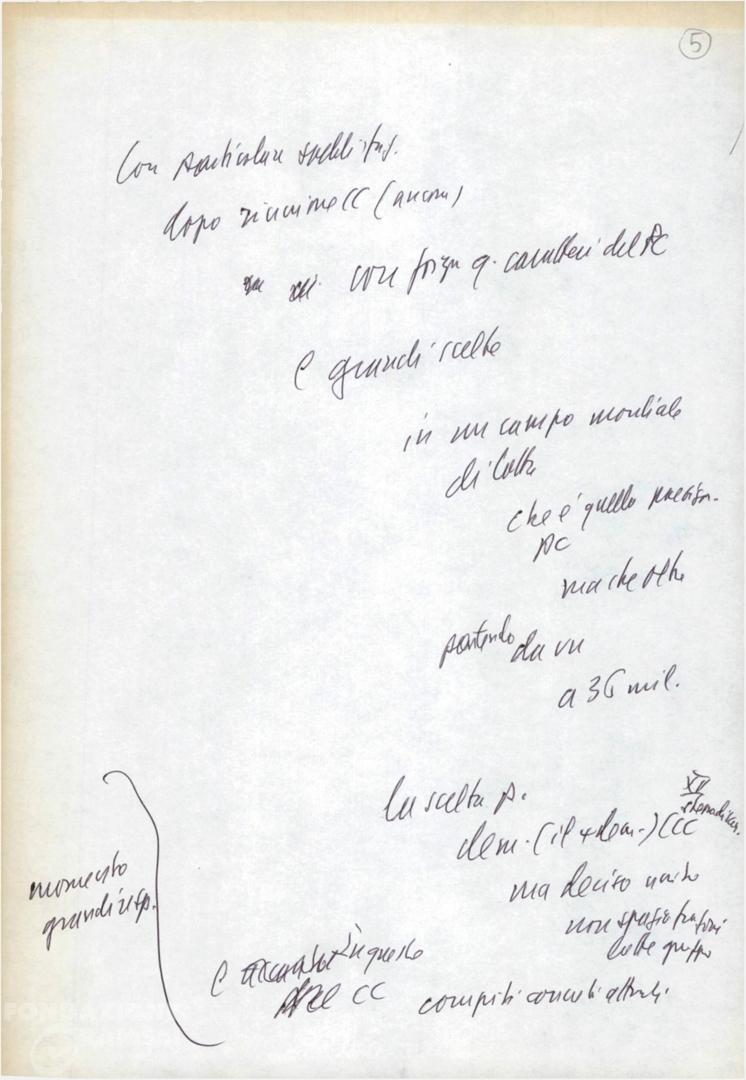 5
Con particolare soddisfaz.
dopo riunione CC (ancora)
con forza q. caratteri del PC
e grandi scelte
in un campo mondiale
di lotta
che è quello
PC
ma che oltre
partendo da un
a 36 mil.
la scelta p.
dem. (il + dem.) CC
XII
ma deciso unito
non spazio frazioni
lotte gruppo
momento
grandi resp.
e in queste
CC compiti concreti attuali
FONDAZIONE